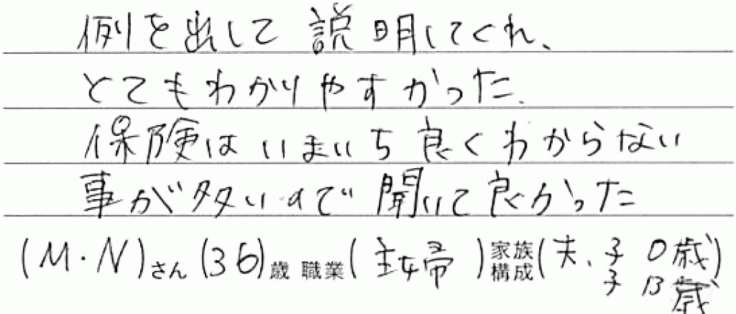 例を出して説明してくれ、
とてもわかりやすかった。
保険はいまいち良くわからない
事が多いので聞いて良かった
(M・N)さん(36)歳 職業(主婦)家族構成(夫、子 0歳)
子 13歳